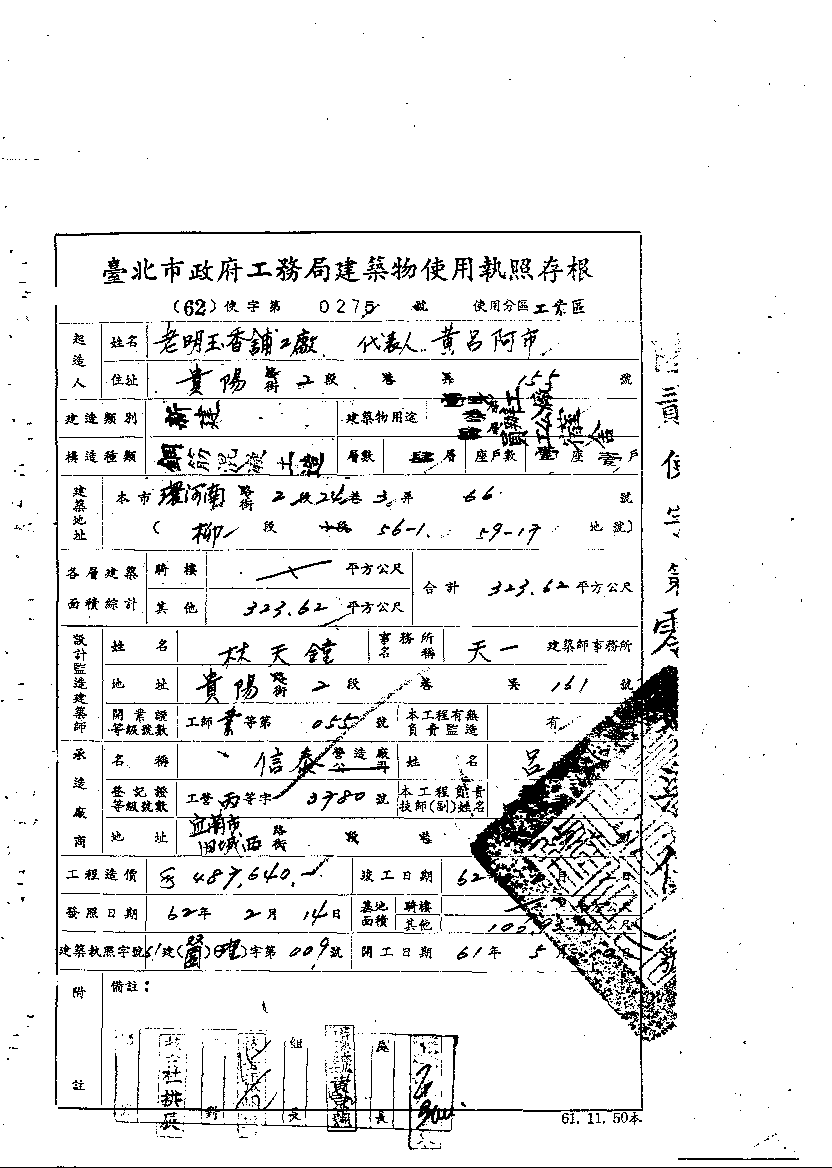 臺北市政府工務局建築物使用執照存根
(62) 使字第 0275 號 使用分區 工業區
起造人 姓名 老明玉香舖工廠 代表人 黃呂阿市
住址 貴陽 路街 2 段 巷 弄 155 號
建造類別 新建 建築物用途
構造種類 鋼筋混凝土造 層數 層 座戶數 壹 座 壹 戶
建築地址 本市 環河南 路街 2 段 24 巷 3 弄 66 號
( 柳一 段 小段 56-1. 59-17 地號)
各層建築面積綜計 騎樓 平方公尺 合計 323.62 平方公尺
其他 323.62 平方公尺
設計監造建築師 姓名 林天鐘 事務所名稱 天一 建築師事務所
地址 貴陽 路街 2 段 巷 弄 161 號
開業證等級號數 工師 業 等第 055 號 本工程有無負責監造 有
承造廠商 名稱 信泰 營造廠公司 姓名 呂
登記證等級號數 工營 丙 等字 3780 號 本工程負責技師(副)姓名
地址 宜蘭市旧城西 路街 段 巷
工程造價 487,640. 竣工日期 62
發照日期 62 年 2 月 14 日 基地面積 騎樓 平方公尺
其他 平方公尺
建築執照字號 61 建 ( ) 字第 009 號 開工日期 61 年 5 月 日
附註 備註：
組長
61. 11. 50本
貳使字第零